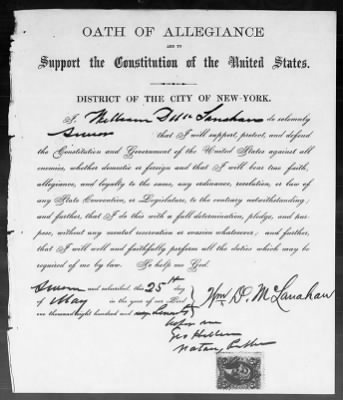 OATH OF ALLEGIANCE
AND TO
Support the Constitution of the United States.
DISTRICT OF THE CITY OF NEW-YORK.
I, William D Mc Lanahan do solemnly
Swear that I will support, protect, and defend
the Constitution and Government of the United States against all
enemies, whether domestic or foreign and that I will bear true faith,
allegiance, and loyalty to the same, any ordinance, resolution, or law of
any State Convention, or Legislature, to the contrary notwithstanding;
and further, that I do this with a full determination, pledge, and pur-
pose, without any mental reservation or evasion whatsoever; and further,
that I will well and faithfully perform all the duties which may be
required of me by law. So help me God.
Sworn and subscribed, this 25th day
of May in the year of our Lord
one thousand eight hundred and
Wm D. McLanahan
before me
Geo
Notary Public